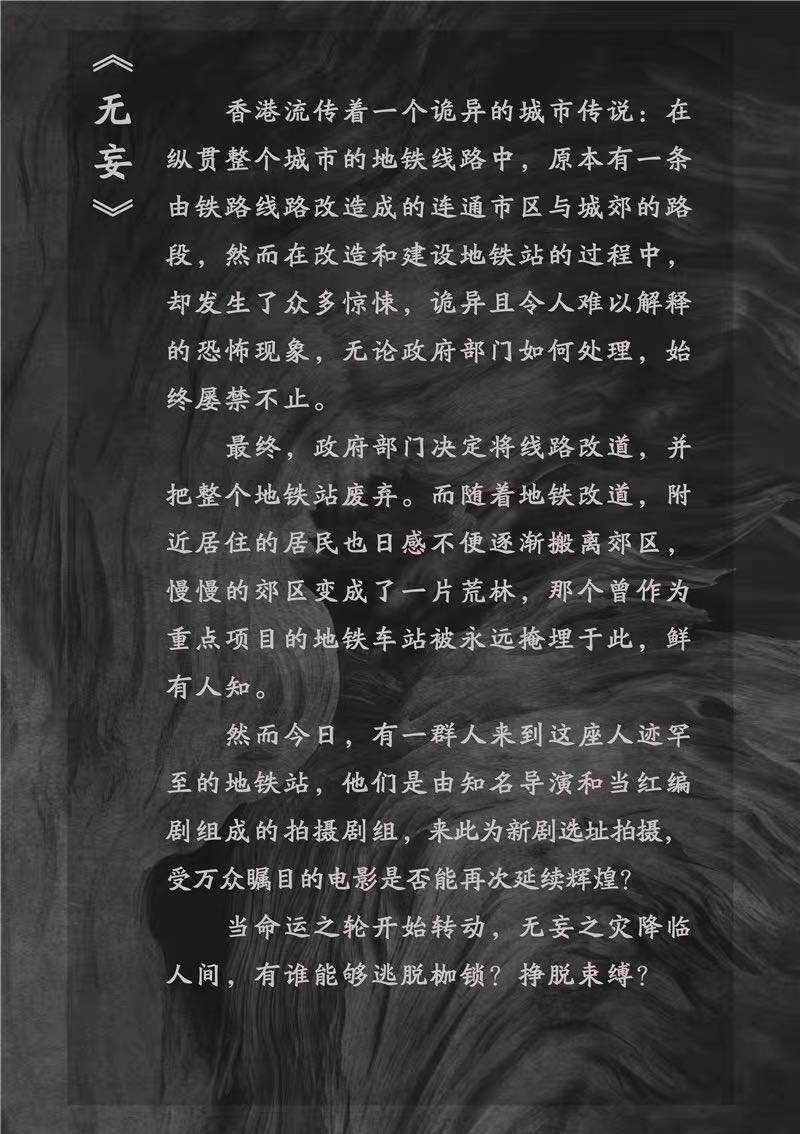 《无妄》
香港流传着一个诡异的城市传说：在
纵贯整个城市的地铁线路中，原本有一条
由铁路线路改造成的连通市区与城郊的路
段，然而在改造和建设地铁站的过程中，
却发生了众多惊悚，诡异且令人难以解释
的恐怖现象，无论政府部门如何处理，始
终屡禁不止。
最终，政府部门决定将线路改道，并
把整个地铁站废弃。而随着地铁改道，附
近居住的居民也日感不便逐渐搬离郊区，
慢慢的郊区变成了一片荒林，那个曾作为
重点项目的地铁车站被永远掩埋于此，鲜
有人知。
然而今日，有一群人来到这座人迹罕
至的地铁站，他们是由知名导演和当红编
剧组成的拍摄剧组，来此为新剧选址拍摄，
受万众瞩目的电影是否能再次延续辉煌？
当命运之轮开始转动，无妄之灾降临
人间，有谁能够逃脱枷锁？挣脱束缚？